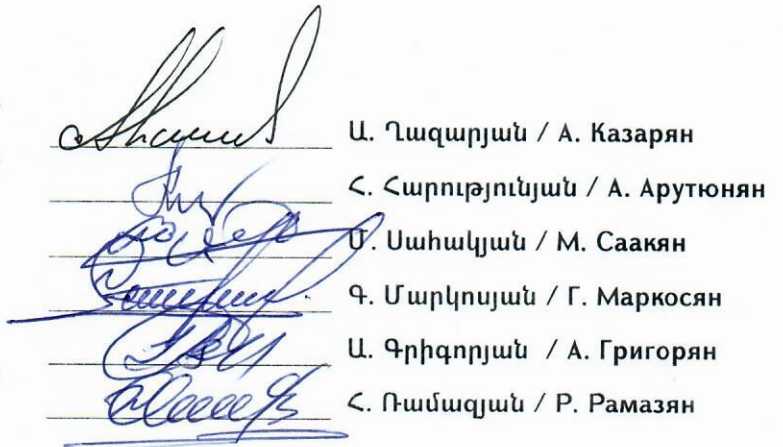 Ա. Ղազարյան / А. Казарян
Հ. Հարությունյան / А. Арутюнян
Մ. Սահակյան / М. Саакян
Գ. Մարկոսյան / Г. Маркосян
Ա. Գրիգորյան / А. Григорян
Հ. Ռամազյան / Р. Рамазян